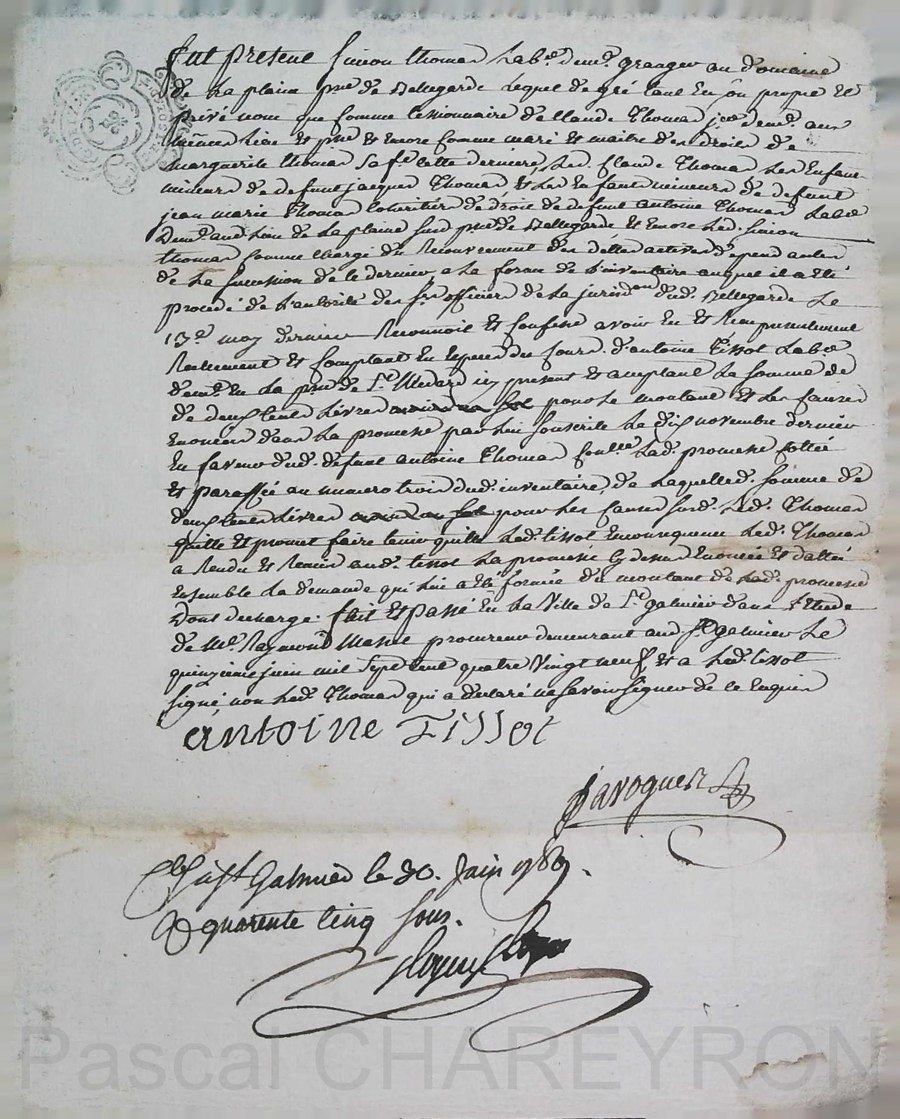 fut présent Simon thomas Lab.r dem.t granger au domaine
de La plaine p.sse de Bellegarde Lequel de gré tant En son propre Et
privé nom que comme Cessionnaire de Claude Thomas dem.t aux
mêmes Lieu Et p.sse Et Encore comme mari Et maitre des droits de
marguerite thomas sa f.e Cette derniere, Led. Claude Thomas Les Enfants
mineurs de defunt jacques Thomas Et Les En fants mineurs de defunt
jean marie Thomas Coheritiers de droit de defunt antoine Thomas Lab.r
dem.t aud. Lieu de La plaine susd. p.sse de Bellegarde Et Encore Led. Simon
thomas comme Chargé du Recouvrement des dettes actives dépendantes
de La succession de Ce dernier a La forme de L'inventaire auquel il a Eté
procédé de L'autorité des s.rs officiers de La jurisd.on dud. Bellegarde Le
13.e may dernier Reconnoit Et Confesse avoir Eu Et Reçu présentement
Reellement Et Comptant En Especes du Cours d'antoine Tissot Lab.r
dem.t En La p.sse de S.t Médard icy present Et acceptant La somme de
de deux Cents Livres pour Le montant Et Les Causes
Enoncées dans La promesse par Lui souscrite Le dix novembre dernier
En faveur dud. defunt antoine Thomas Lad. promesse Cottée
Et paraffée au numero trois dud. inventaire, de Laquelle d. somme de
deux Cents Livres pour Les Causes susd. Led. Thomas
quitte Et promet faire tenir quitte Led. tissot Enconsequence Led. Thomas
a Rendu Et Remis aud. tissot La promesse Cy dessus Enoncée Et dattée
Ensemble La demande qui Lui a Eté formée du montant de Lad. promesse
Dont decharge. fait Et passé En La Ville de S.t galmier dans L'Etude
de M.e Raymond Massol procureur demeurant aud. S.t galmier Le
quinzieme juin mil sept Cent quatre Vingt neuf Et a Led. tissot
signé, non Led. Thomas qui a declaré ne savoir signer de Ce Enquis
antoine Tissot
Javogues
C.lé à S.t Galmier le 30. Juin 1789.
R quarente cinq sous.
Pascal CHAREYRON